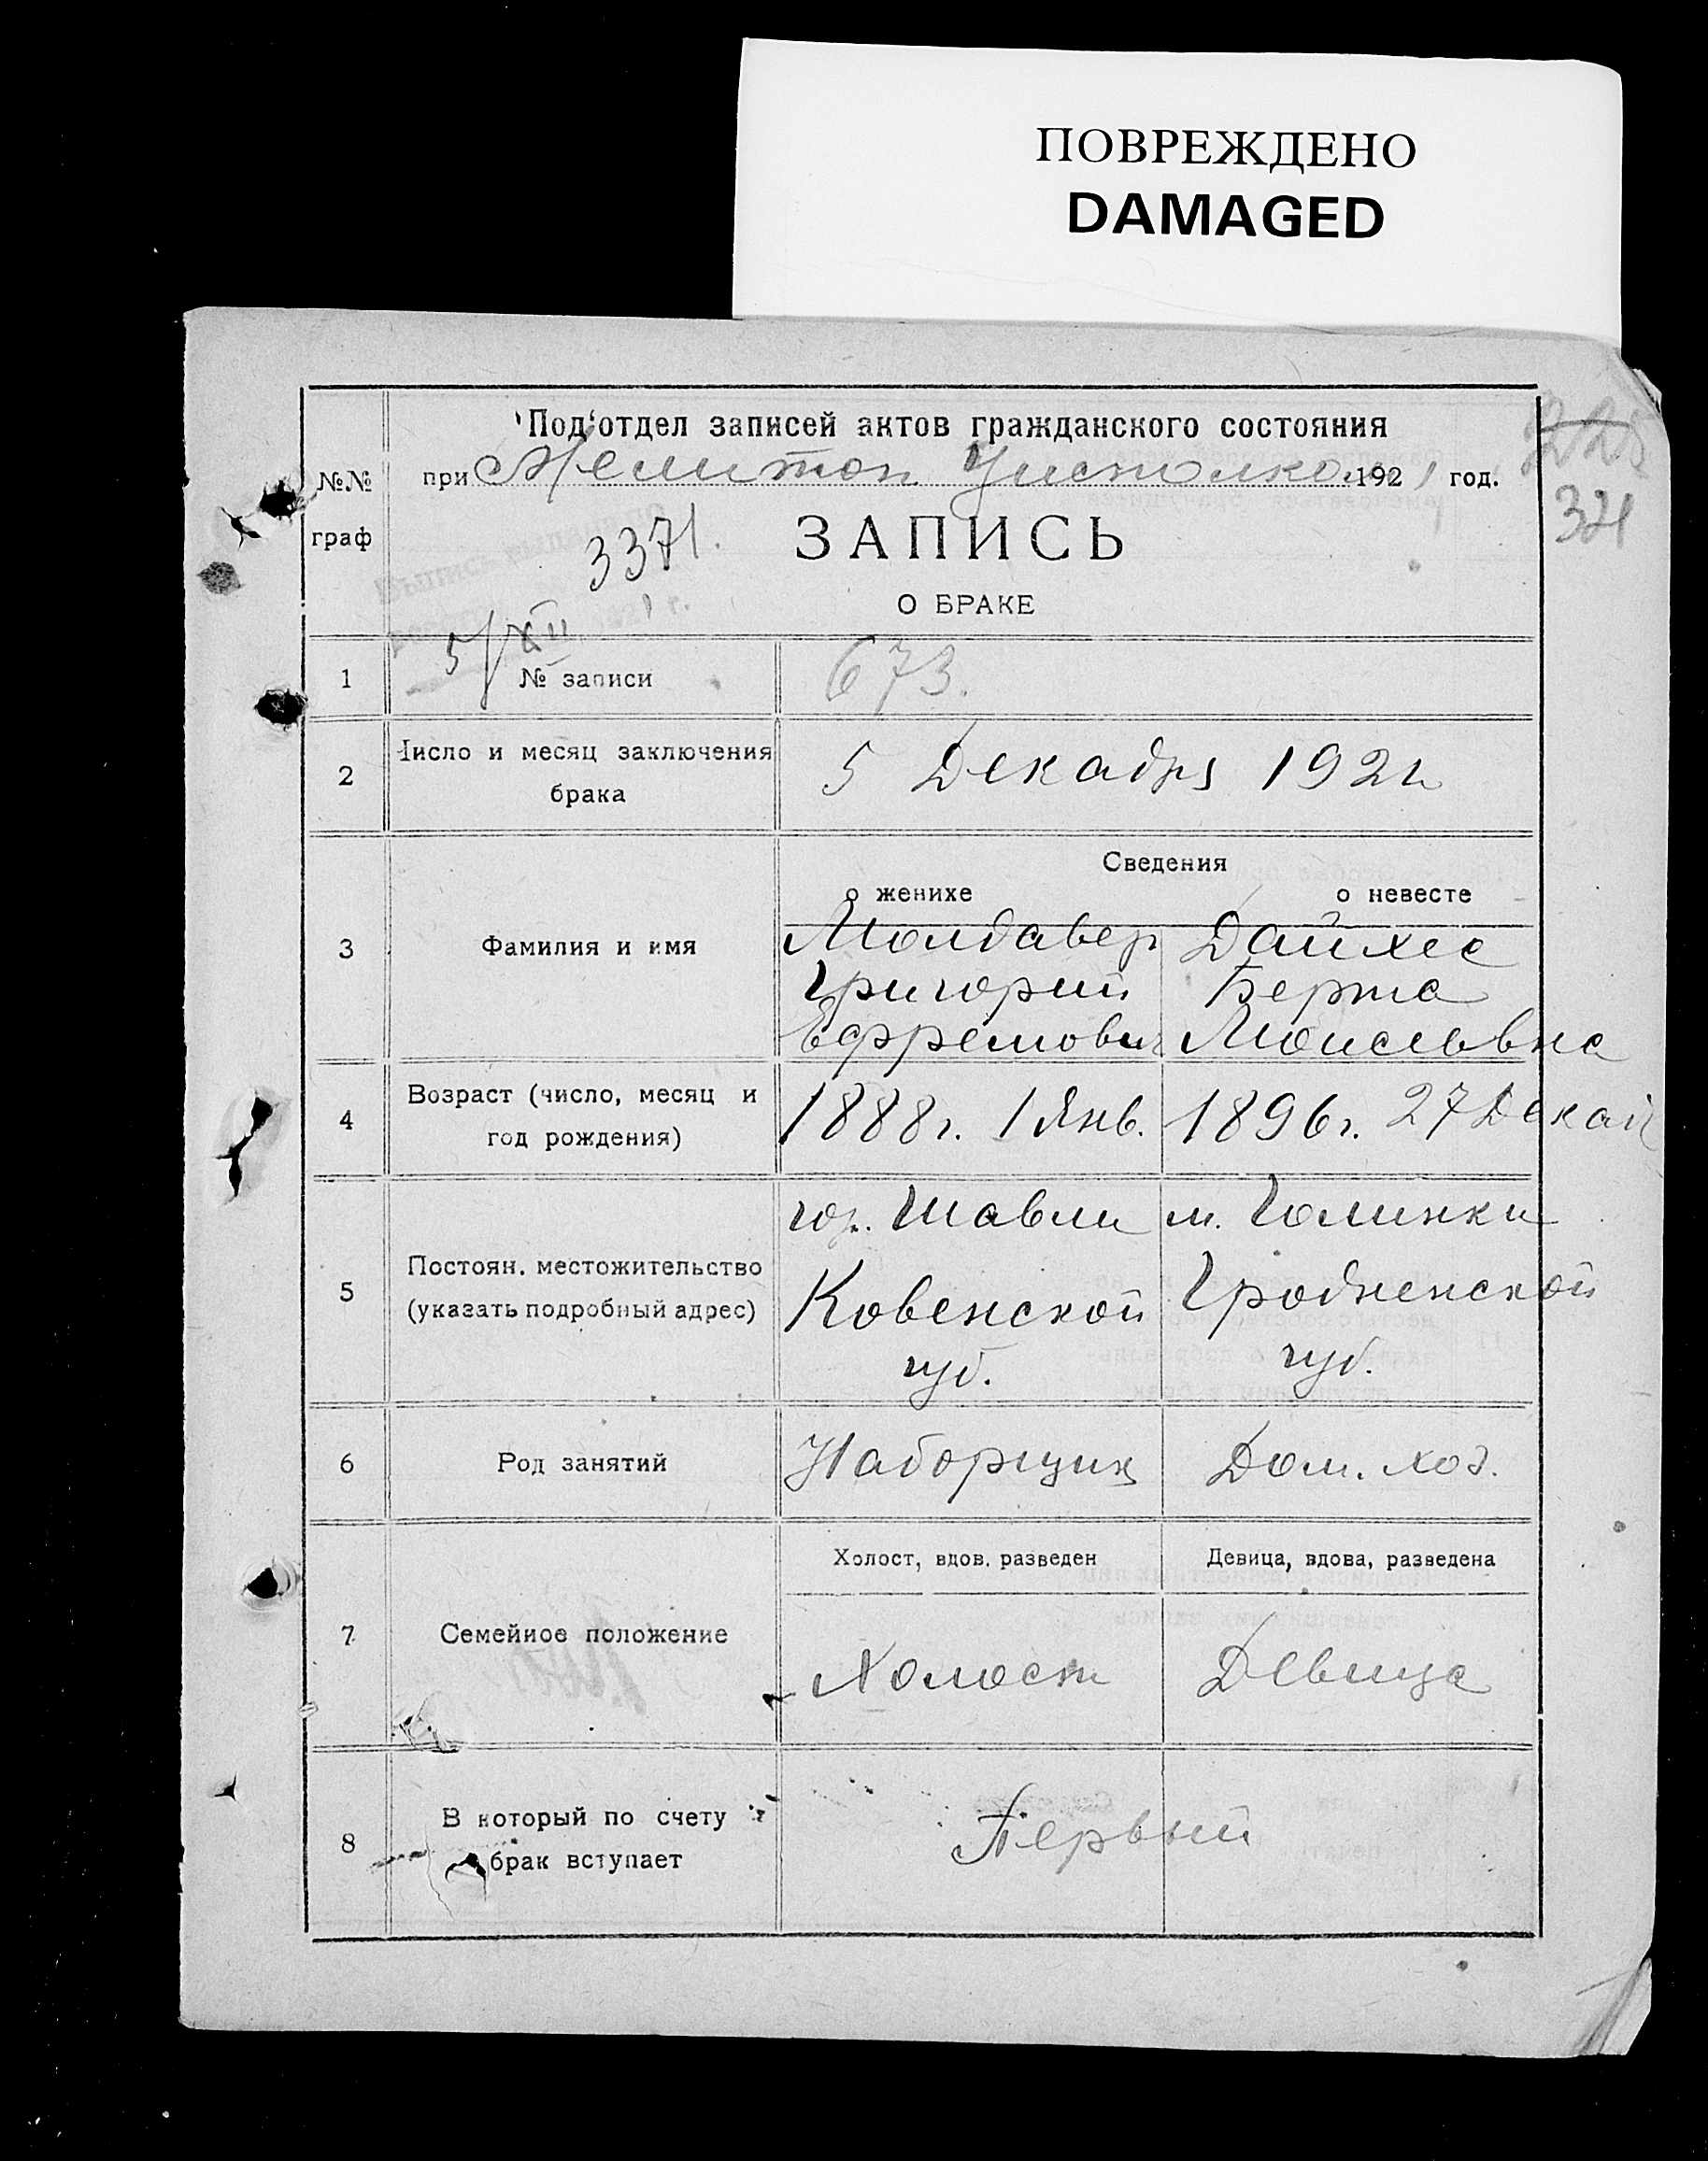 ПОВРЕЖДЕНО
DAMAGED
Подотдел записей актов гражданского состояния
при Мелитоп Уисполкоме 1921 год.
225
321
№№ граф
3371.
ЗАПИСЬ
О БРАКЕ
5/XII
1 № записи 673.
2 Число и месяц заключения брака 5 Декабря 1921 г.
Сведения
о женихе о невесте
3 Фамилия и имя
Молдавер Дайхес
Григорий Берта
Ефремович Моисеевна
4 Возраст (число, месяц и год рождения) 1888 г. 1 Янв. 1896 г. 27 Декаб
5 Постоян. местожительство (указать подробный адрес)
гор. Шавли м. Голинки
Ковенской Гродненской
губ. губ.
6 Род занятий Наборщик Дом. хоз.
Холост, вдов. разведен Девица, вдова, разведена
7 Семейное положение Холост Девица
8 В который по счету брак вступает Первый